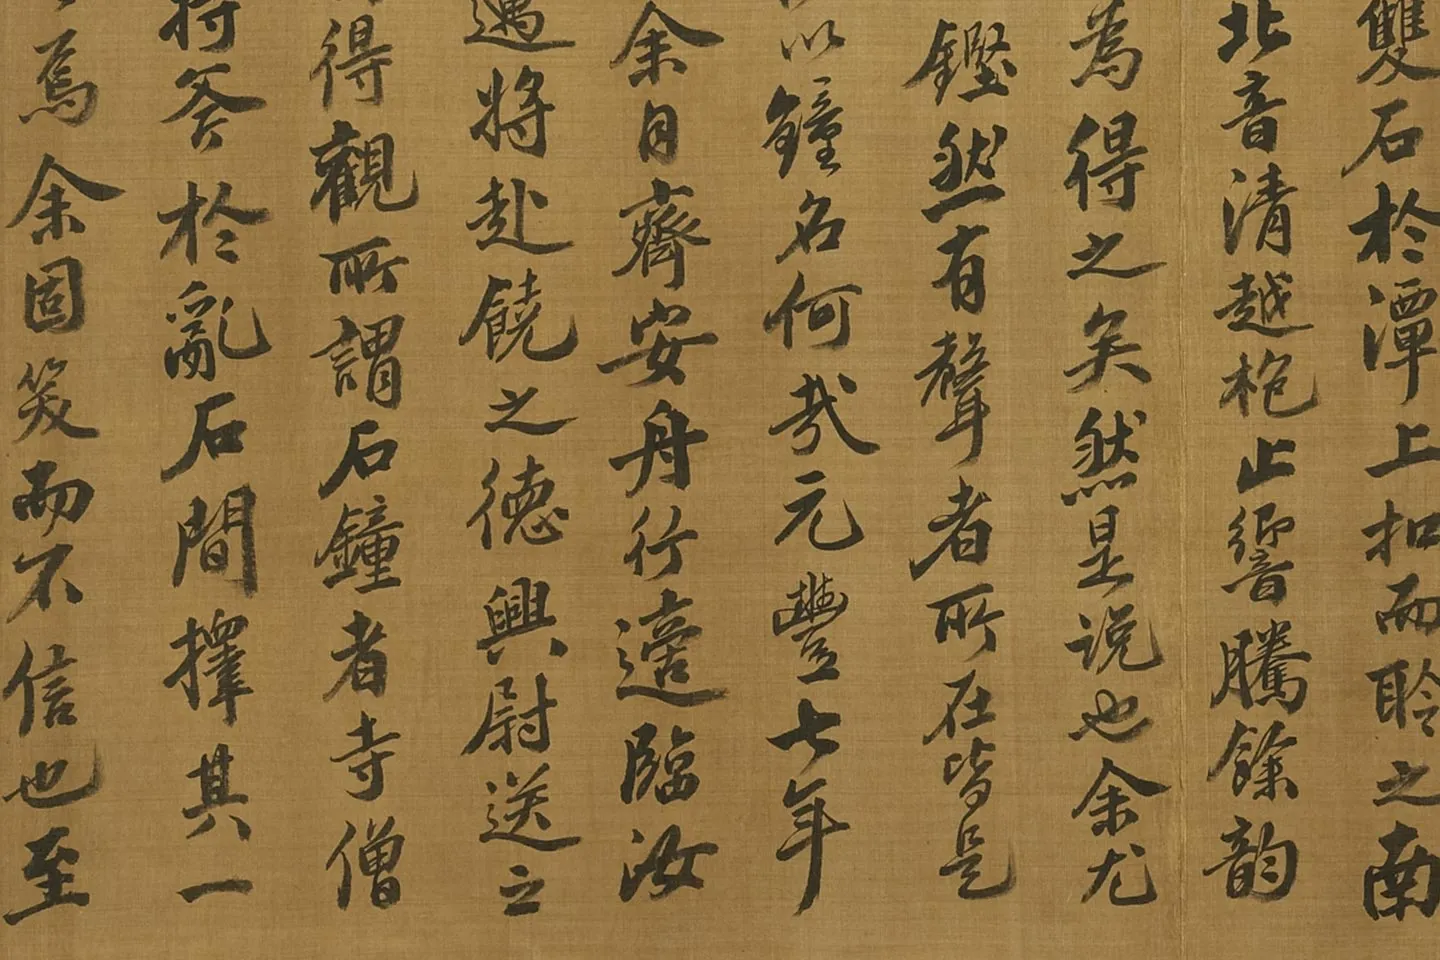 雙石於潭上扣而聆之南
北音清越枹止響騰餘韵
為得之矣然是说也余尤
鏗然有聲者所在皆是
以鐘名何哉元豐七年
余自齊安舟行適臨汝
邁將赴饒之德興尉送之
得觀所謂石鐘者寺僧
持斧於亂石間擇其一
焉余固笑而不信也至